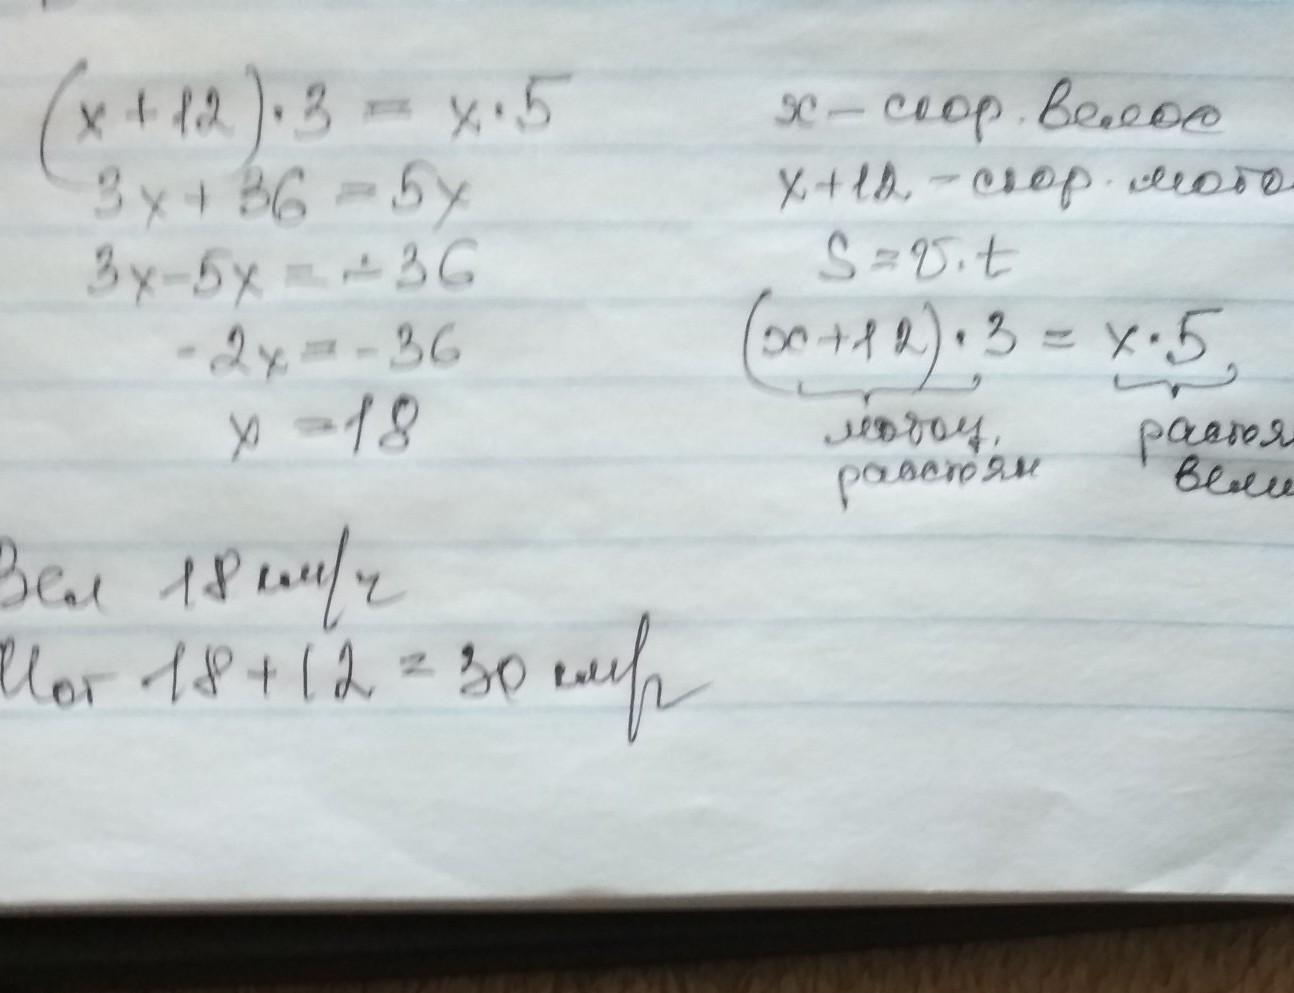 (x+12)·3 = x·5
3x+36=5x
3x-5x=-36
-2x=-36
x=18
Вел 18 км/ч
Мот 18+12=30 км/ч
x - скор. велос
x+12 - скор. мото
S=v·t
(x+12)·3 = x·5
мотоц. растоя
расстоян вели